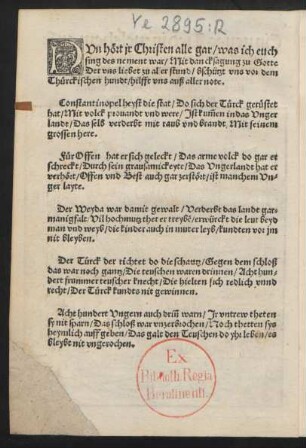 Ye 2895:R
NUn hört jr Christen alle gar/was ich euch
sing des nement war/Mit dancksagung zu Gotte
Der vns liebet zu aller stund/bschützt vns vor dem
Thürckischen hundt/hilfft vns auß aller note.
Constantinopel heyst die stat/Do sich der Türck gerüstet
hat/Mit volck prouandt vnd were/Ist kumen in das Vnger
landt/Das selb verderbt mit raub vnd brandt/Mit seinem
grossen here.
Für Offen hat er sich geleckt/Das arme volck do gar er
schreckt/Durch sein grausamickeyte/Das Vngerlandt hat er
verhört/Offen vnd Pest auch gar zerstört/ist manchem Vn
ger layte.
Der Weyda war damit gewalt/Verderbt das landt gar
manigfalt/Vil hochmut ther er treybe/erwürckt die leut beyd
man vnd weyb/die kinder auch in muter leyb/kundten vor jm
nit bleyben.
Der Türck der richtet do die schantz/Gegen dem schloß
das war noch gantz/Die teuschen waren drinnen/Acht hun
dert frummer teuscher knecht/Die hielten sich redlich vnnd
recht/Der Türck kundts nit gewinnen.
Acht hundert Vngern auch drin warn/Ir vntrew theten
sy nit sparn/Das schloß war vnzerbrochen/Noch thetten sys
heymlich auff geben/Das galt den Teuschen do yhr leben/es
bleybt nit vngerochen.
Ex
Biblioth. Regia
Berolinensi.